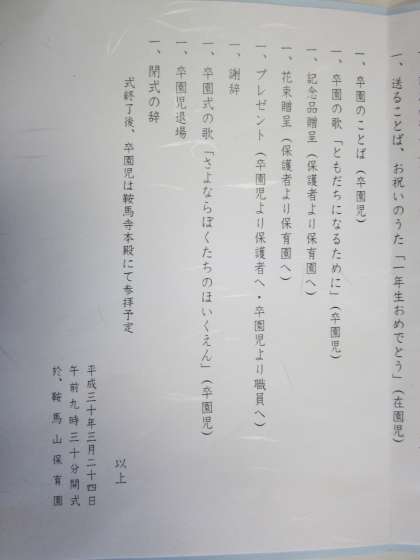 一、送ることば、お祝いのうた「一年生おめでとう」(在園児)
一、卒園のことば(卒園児)
一、卒園の歌「ともだちになるために」(卒園児)
一、記念品贈呈(保護者より保育園へ)
一、花束贈呈(保護者より保育園へ)
一、プレゼント(卒園児より保護者へ・卒園児より職員へ)
一、謝辞
一、卒園式の歌「さよならぼくたちのほいくえん」(卒園児)
一、卒園児退場
一、閉式の辞
式終了後、卒園児は鞍馬寺本殿にて参拝予定
以上
平成三十年三月二十四日
午前九時三十分開式
於、鞍馬山保育園